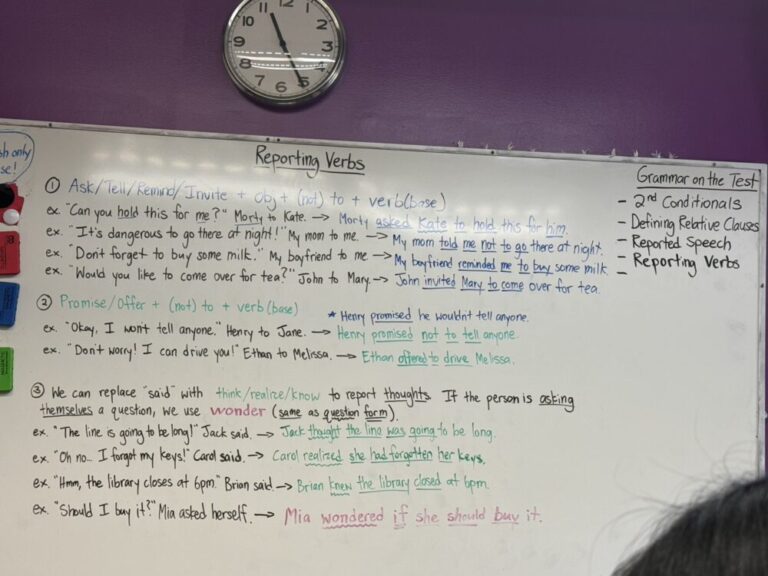 11 12 1
10 2
9 3
8 4
7 6 5
sh only
se!
Reporting Verbs
① Ask/Tell/Remind/Invite + obj + (not) to + verb(base)
ex. "Can you hold this for me?" Morty to Kate. → Morty asked Kate to hold this for him.
ex. "It's dangerous to go there at night!" My mom to me. → My mom told me not to go there at night.
ex. "Don't forget to buy some milk." My boyfriend to me → My boyfriend reminded me to buy some milk.
ex. "Would you like to come over for tea?" John to Mary → John invited Mary to come over for tea.
② Promise/Offer + (not) to + verb (base)
* Henry promised he wouldn't tell anyone.
ex. "Okay, I won't tell anyone." Henry to Jane. → Henry promised not to tell anyone.
ex. "Don't worry! I can drive you!" Ethan to Melissa. → Ethan offered to drive Melissa.
③ We can replace "said" with think/realize/know to report thoughts. If the person is asking
themselves a question, we use wonder (same as question form).
ex. "The line is going to be long!" Jack said. → Jack thought the line was going to be long.
ex. "Oh no... I forgot my keys!" Carol said. → Carol realized she had forgotten her keys.
ex. "Hmm, the library closes at 6pm." Brian said. → Brian knew the library closed at 6pm.
ex. "Should I buy it?" Mia asked herself. → Mia wondered if she should buy it.
Grammar on the Test
- 2nd Conditionals
- Defining Relative Clauses
- Reported Speech
- Reporting Verbs
-